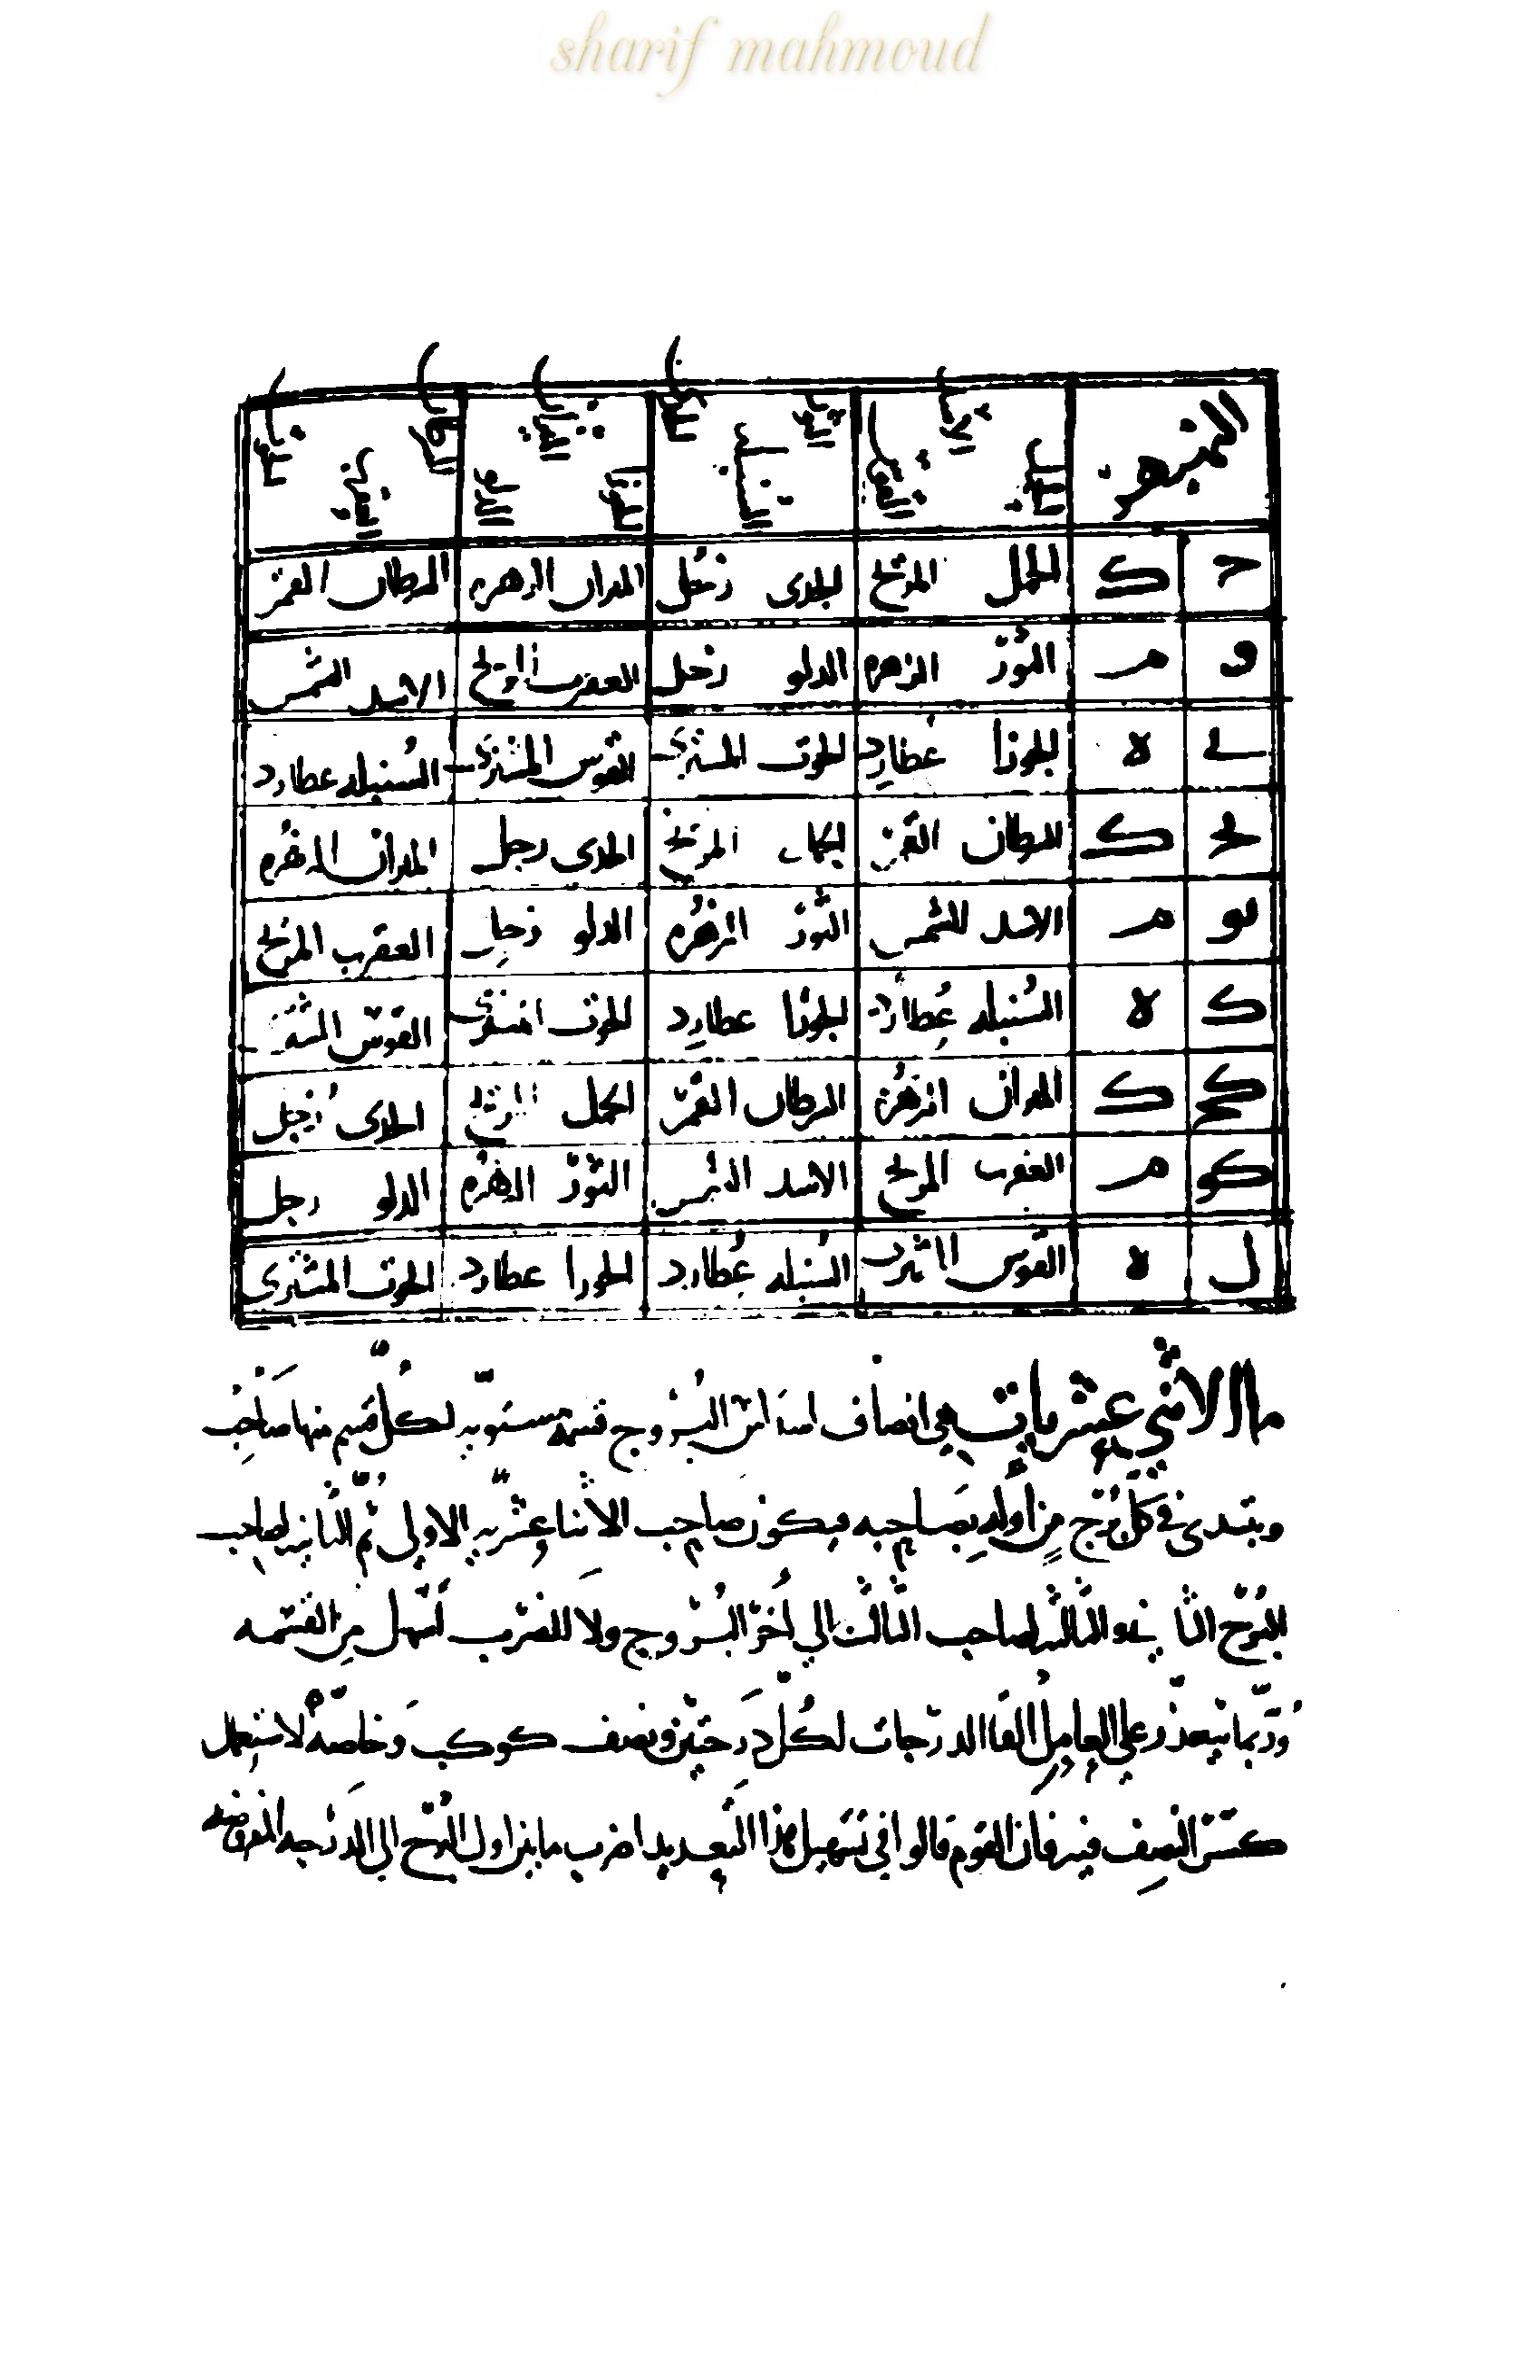 sharif mahmoud
النهبهر
ح ك الحمل المريخ الجدى زحل المیزان الزهره السرطان القمر
و م الثور الزهره الدلو زحل العقرب المريخ الاسد الشمس
ى ه الجوزا عطارد الحوت المشترى القوس المشترى السنبله عطارد
يح ك السرطان القمر الحمل المريخ الجدى زحل الميزان الزهره
يو م الاسد للشمس الثور الزهره الدلو زحل العقرب المريخ
ك ه السنبله عطارد الجوزا عطارد الحوت المشترى القوس المشترى
كح ك الميزان الزهره السرطان القمر الحمل المريخ الجدى زحل
كو م العقرب المريخ الاسد الشمس الثور الزهره الدلو زحل
ل ه القوس المشترى السنبله عطارد الجوزا عطارد الحوت المشترى
ما الاثني عشريات هي انصاف اسداس البروج قسمه مستويه لكل قسم منها صاحب
ويبتدى في كل برج من أوله بصاحبه فيكون صاحب الاثنا عشريه الاولى ثم الثانيه لصاحب
البرج الثاني والثالثه لصاحب الثالث الي آخر البروج ولا للضرب أسهل من القسمه
وربما يتعذر على العامل القا الدرجات لكل درجتين ونصف كوكب وخاصه لاستعمال
كسر النصف فيه فان القوم قالوا في تسهيل هذا التعديد اضرب ما بين اول البرج الي الدرجه المفروضه